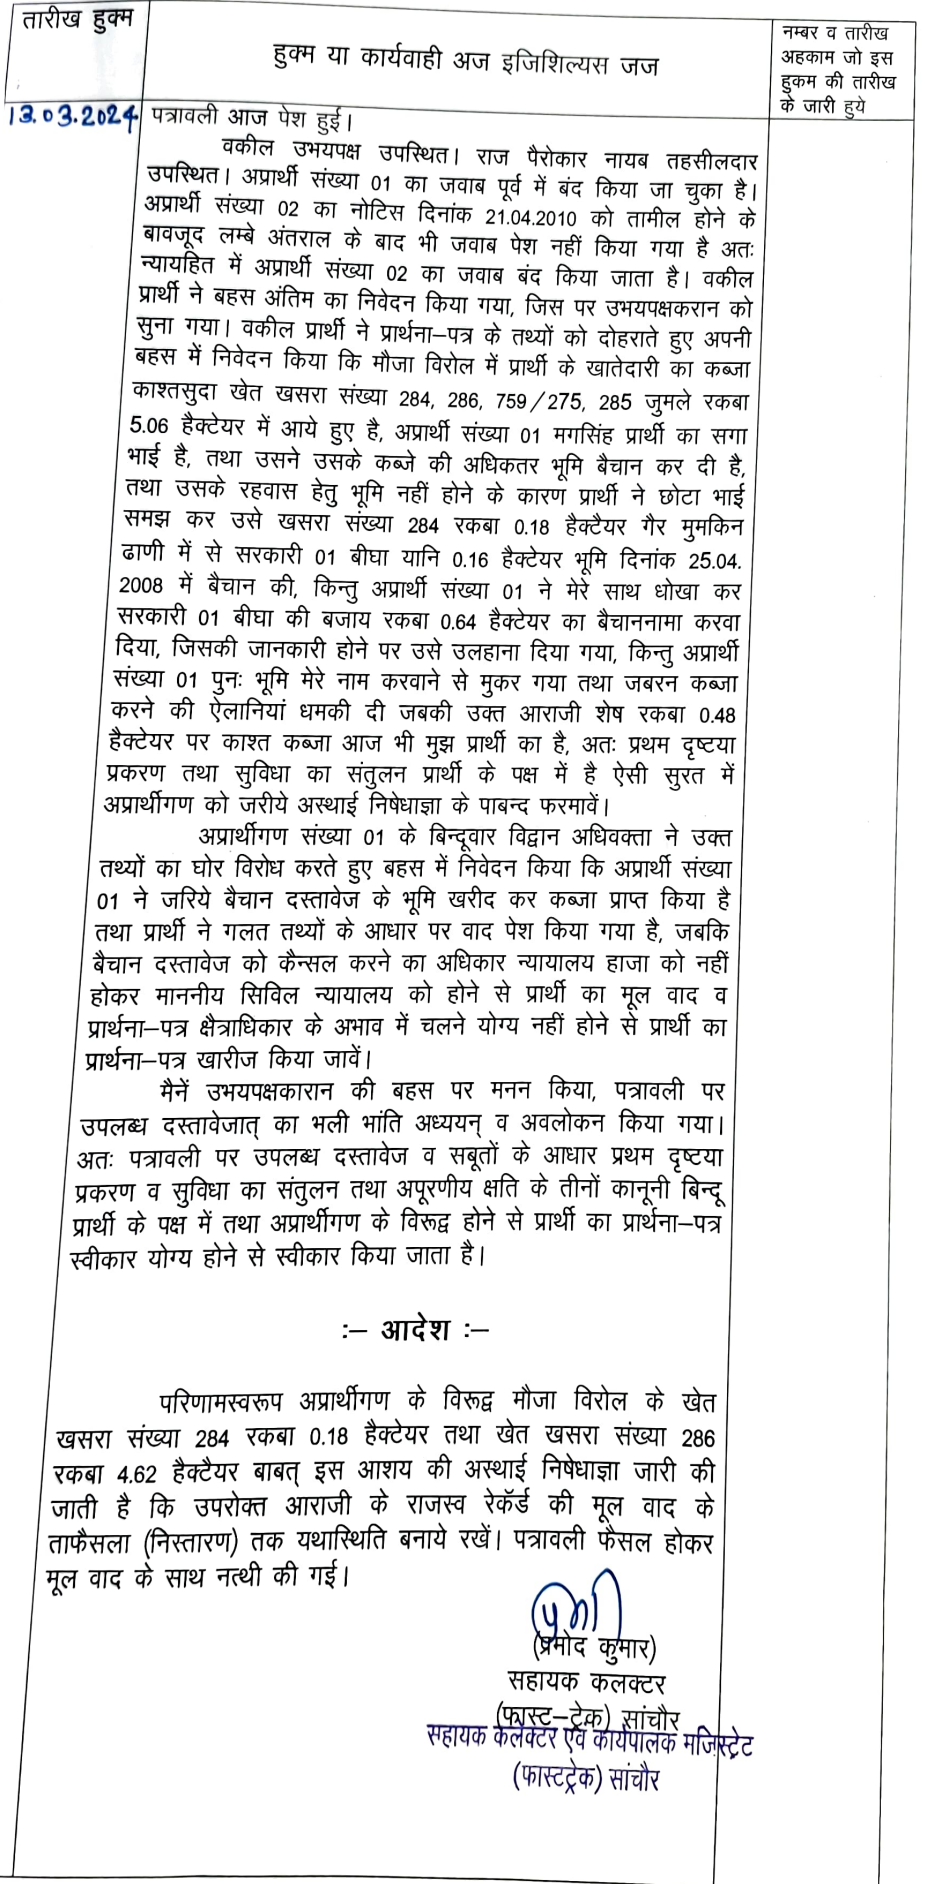 तारीख हुक्म
हुक्म या कार्यवाही अज इजिशिल्यस जज
नम्बर व तारीख
अहकाम जो इस
हुकम की तारीख
के जारी हुये
13.03.2024
पत्रावली आज पेश हुई।
वकील उभयपक्ष उपस्थित। राज पैरोकार नायब तहसीलदार
उपस्थित। अप्रार्थी संख्या 01 का जवाब पूर्व में बंद किया जा चुका है।
अप्रार्थी संख्या 02 का नोटिस दिनांक 21.04.2010 को तामील होने के
बावजूद लम्बे अंतराल के बाद भी जवाब पेश नहीं किया गया है अतः
न्यायहित में अप्रार्थी संख्या 02 का जवाब बंद किया जाता है। वकील
प्रार्थी ने बहस अंतिम का निवेदन किया गया, जिस पर उभयपक्षकरान को
सुना गया। वकील प्रार्थी ने प्रार्थना–पत्र के तथ्यों को दोहराते हुए अपनी
बहस में निवेदन किया कि मौजा विरोल में प्रार्थी के खातेदारी का कब्जा
काश्तसुदा खेत खसरा संख्या 284, 286, 759/275, 285 जुमले रकबा
5.06 हैक्टेयर में आये हुए है, अप्रार्थी संख्या 01 मगसिंह प्रार्थी का सगा
भाई है, तथा उसने उसके कब्जे की अधिकतर भूमि बैचान कर दी है,
तथा उसके रहवास हेतु भूमि नहीं होने के कारण प्रार्थी ने छोटा भाई
समझ कर उसे खसरा संख्या 284 रकबा 0.18 हैक्टैयर गैर मुमकिन
ढाणी में से सरकारी 01 बीघा यानि 0.16 हैक्टेयर भूमि दिनांक 25.04.
2008 में बैचान की, किन्तु अप्रार्थी संख्या 01 ने मेरे साथ धोखा कर
सरकारी 01 बीघा की बजाय रकबा 0.64 हैक्टेयर का बैचाननामा करवा
दिया, जिसकी जानकारी होने पर उसे उलहाना दिया गया, किन्तु अप्रार्थी
संख्या 01 पुनः भूमि मेरे नाम करवाने से मुकर गया तथा जबरन कब्जा
करने की ऐलानियां धमकी दी जबकी उक्त आराजी शेष रकबा 0.48
हैक्टेयर पर काश्त कब्जा आज भी मुझ प्रार्थी का है, अतः प्रथम दृष्टया
प्रकरण तथा सुविधा का संतुलन प्रार्थी के पक्ष में है ऐसी सुरत में
अप्रार्थीगण को जरीये अस्थाई निषेधाज्ञा के पाबन्द फरमावें।
अप्रार्थीगण संख्या 01 के बिन्दूवार विद्वान अधिवक्ता ने उक्त
तथ्यों का घोर विरोध करते हुए बहस में निवेदन किया कि अप्रार्थी संख्या
01 ने जरिये बैचान दस्तावेज के भूमि खरीद कर कब्जा प्राप्त किया है
तथा प्रार्थी ने गलत तथ्यों के आधार पर वाद पेश किया गया है, जबकि
बैचान दस्तावेज को कैन्सल करने का अधिकार न्यायालय हाजा को नहीं
होकर माननीय सिविल न्यायालय को होने से प्रार्थी का मूल वाद व
प्रार्थना–पत्र क्षैत्राधिकार के अभाव में चलने योग्य नहीं होने से प्रार्थी का
प्रार्थना–पत्र खारीज किया जावें।
मैनें उभयपक्षकारान की बहस पर मनन किया, पत्रावली पर
उपलब्ध दस्तावेजात् का भली भांति अध्ययन् व अवलोकन किया गया।
अतः पत्रावली पर उपलब्ध दस्तावेज व सबूतों के आधार प्रथम दृष्टया
प्रकरण व सुविधा का संतुलन तथा अपूरणीय क्षति के तीनों कानूनी बिन्दू
प्रार्थी के पक्ष में तथा अप्रार्थीगण के विरूद्व होने से प्रार्थी का प्रार्थना–पत्र
स्वीकार योग्य होने से स्वीकार किया जाता है।
:– आदेश :–
परिणामस्वरूप अप्रार्थीगण के विरूद्व मौजा विरोल के खेत
खसरा संख्या 284 रकबा 0.18 हैक्टेयर तथा खेत खसरा संख्या 286
रकबा 4.62 हैक्टैयर बाबत् इस आशय की अस्थाई निषेधाज्ञा जारी की
जाती है कि उपरोक्त आराजी के राजस्व रेकॅर्ड की मूल वाद के
ताफैसला (निस्तारण) तक यथास्थिति बनाये रखें। पत्रावली फैसल होकर
मूल वाद के साथ नत्थी की गई।
(प्रमोद कुमार)
सहायक कलक्टर
(फास्ट–ट्रेक) सांचौर
सहायक कलेक्टर एवं कार्यपालक मजिस्ट्रेट
(फास्टट्रेक) सांचौर